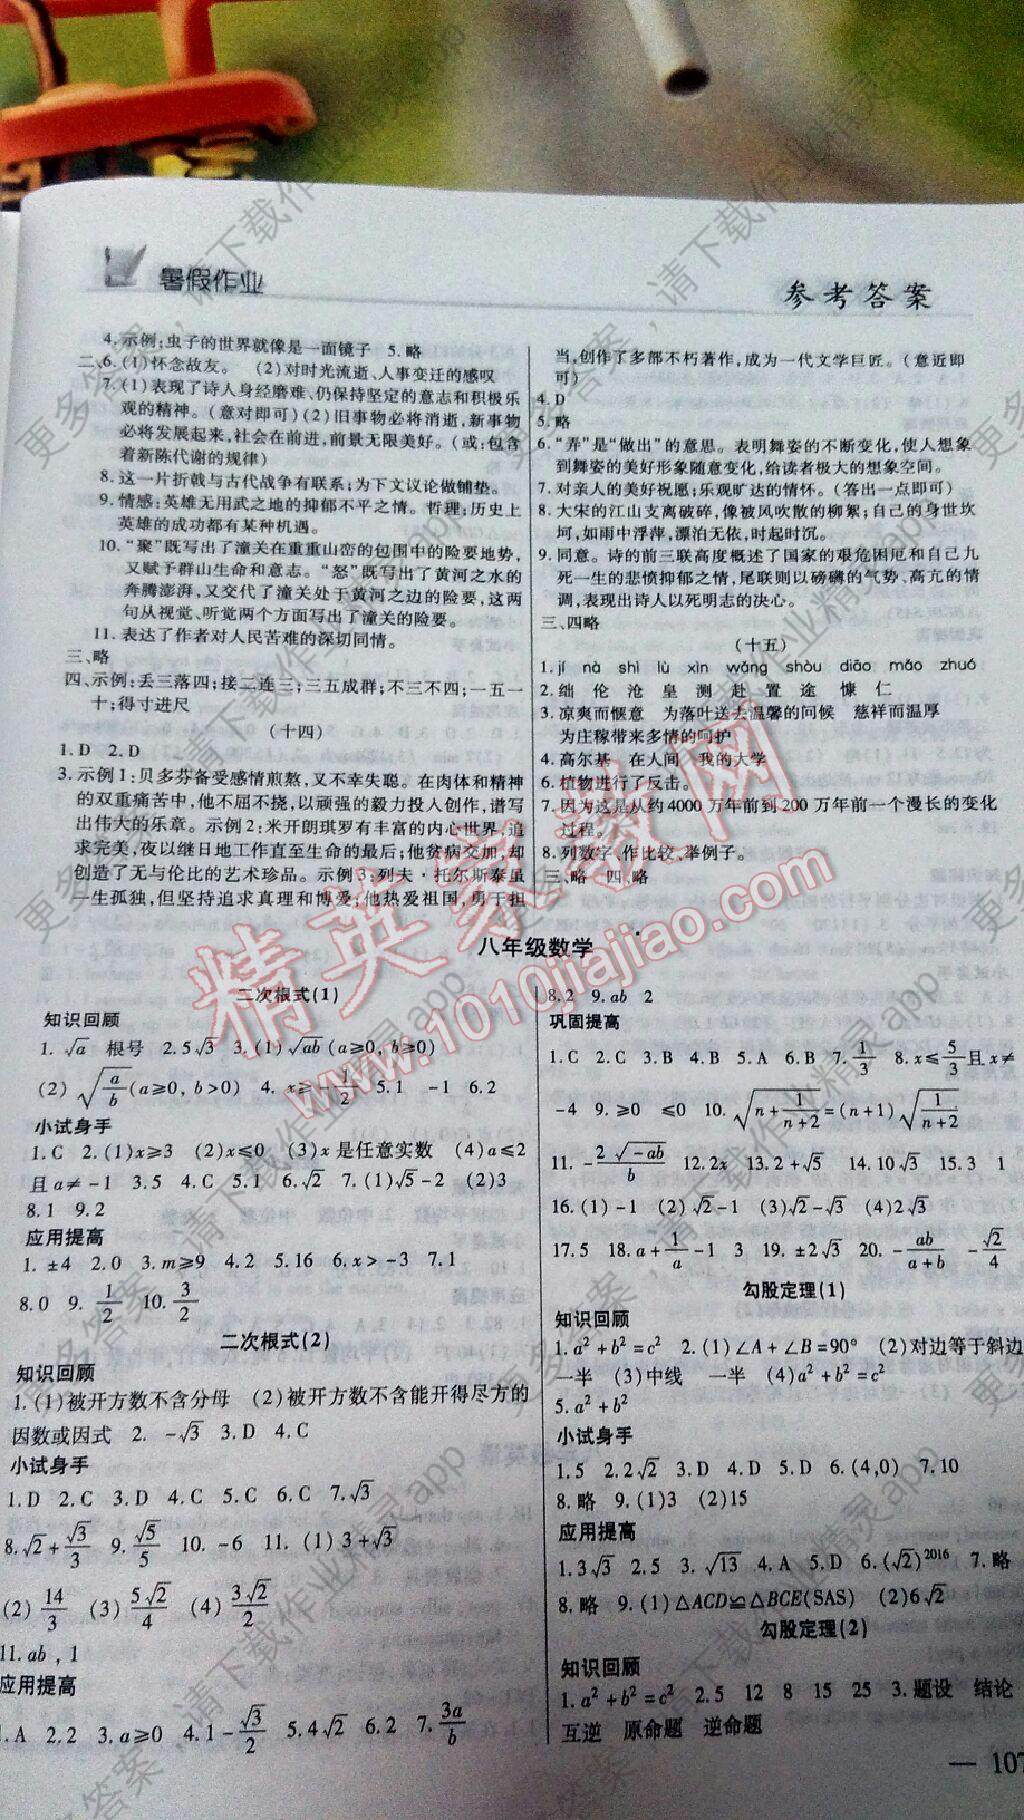 暑假作业
参考答案
4. 示例:虫子的世界就像是一面镜子 5. 略
二、6. (1)怀念故友。 (2)对时光流逝、人事变迁的感叹
7. (1)表现了诗人身经磨难、仍保持坚定的意志和积极乐
观的精神。(意对即可)(2)旧事物必将消逝,新事物
必将发展起来,社会在前进,前景无限美好。(或:包含
着新陈代谢的规律)
8. 这一片折戟与古代战争有联系;为下文议论做铺垫。
9. 情感:英雄无用武之地的抑郁不平之情。哲理:历史上
英雄的成功都有某种机遇。
10. “聚”既写出了潼关在重重山峦的包围中的险要地势,
又赋予群山生命和意志。“怒”既写出了黄河之水的
奔腾澎湃,又交代了潼关处于黄河之边的险要,这两
句从视觉、听觉两个方面写出了潼关的险要。
11. 表达了作者对人民苦难的深切同情。
三、略
四、示例:丢三落四;接二连三;三五成群;不三不四;一五一
十;得寸进尺
(十四)
1. D 2. D
3. 示例1:贝多芬备受感情煎熬,又不幸失聪。在肉体和精神
的双重痛苦中,他不屈不挠,以顽强的毅力投入创作,谱写
出伟大的乐章。示例2:米开朗琪罗有丰富的内心世界,追
求完美,夜以继日地工作直至生命的最后;他贫病交加,却
创造了无与伦比的艺术珍品。示例3:列夫·托尔斯泰虽
一生孤独,但坚持追求真理和博爱;他热爱祖国,勇于担
当,创作了多部不朽著作,成为一代文学巨匠。(意近即
可)
4. D
5. 略
6. “弄”是“做出”的意思。表明舞姿的不断变化,使人想象
到舞姿的美好形象随意变化,给读者极大的想象空间。
7. 对亲人的美好祝愿;乐观旷达的情怀。(答出一点即可)
8. 大宋的江山支离破碎,像被风吹散的柳絮;自己的身世坎
坷,如雨中浮萍,漂泊无依,时起时沉。
9. 同意。诗的前三联高度概述了国家的艰危困厄和自己九
死一生的悲愤抑郁之情,尾联则以磅礴的气势、高亢的情
调,表现出诗人以死明志的决心。
三、四略
(十五)
1. jí nà shì lù xìn wǎng shòu diāo máo zhuó
2. 绌 伦 沧 皇 测 赴 置 途 慷 仁
3. 凉爽而惬意 为落叶送去温馨的问候 慈祥而温厚
为庄稼带来多情的呵护
4. 高尔基 在人间 我的大学
6. 植物进行了反击。
7. 因为这是从约4000万年前到200万年前一个漫长的变化
过程。
8. 列数字、作比较、举例子。
三、略 四、略
八年级数学
二次根式(1)
知识回顾
1. √a 根号 2. 5√3 3. (1)√ab (a≥0, b≥0)
(2) √(a/b) (a≥0, b>0) 4. x≥-1/2 5. 1 -1 6. 2
小试身手
1. C 2. (1)x≥3 (2)x≤0 (3)x是任意实数 (4)a≤2
且a≠-1 3. 5 4. C 5. 1 6. √2 7. (1)√5-2 (2)3
8. 1 9. 2
应用提高
1. ±4 2. 0 3. m≥9 4. 2 5. 16 6. x>-3 7. 1
8. 0 9. 1/2 10. 3/2
二次根式(2)
知识回顾
1. (1)被开方数不含分母 (2)被开方数不含能开得尽方的
因数或因式 2. -√3 3. D 4. C
小试身手
1. D 2. C 3. D 4. C 5. C 6. C 7. √3
8. √2+√3/3 9. √5/5 10. -6 11. (1) 3+√3
(2) 14/3 (3) 5√2/4 (4) 3√2/2
11. ab, 1
应用提高
1. A 2. 2 3. a≥0 4. 1-√3/2 5. 4√2 6. 2 7. 3a/b
8. 2 9. ab 2
巩固提高
1. C 2. C 3. B 4. B 5. A 6. B 7. 1/3 8. x≤5/3且x≠
-4 9. ≥0 ≤0 10. √(n+1/(n+2))=(n+1)√(1/(n+2))
11. -2√(-ab)/b 12. 2x 13. 2+√5 14. 10√3 15. 3 1
16. (1)-1 (2)√2-1 (3)√2-√3 (4)2√3
17. 5 18. a+1/a-1 3 19. ±2√3 20. -ab/(a+b) -√2/4
勾股定理(1)
知识回顾
1. a²+b²=c² 2. (1)∠A+∠B=90° (2)对边等于斜边
一半 (3)中线 一半 (4)a²+b²=c²
5. a²+b²
小试身手
1. 5 2. 2√2 3. D 4. D 5. D 6. (4,0) 7. 10
8. 略 9. (1)3 (2)15
应用提高
1. 3√3 2. 5 3. √13 4. A 5. D 6. (√2)²⁰¹⁶ 7. 略
8. 略 9. (1)△ACD≌△BCE(SAS) (2)6√2
勾股定理(2)
知识回顾
1. a²+b²=c² 2. 5 12 8 15 25 3. 题设 结论
互逆 原命题 逆命题
— 107
精英家教网
www.1010jiajiao.com
更多答案,请下载作业精灵app